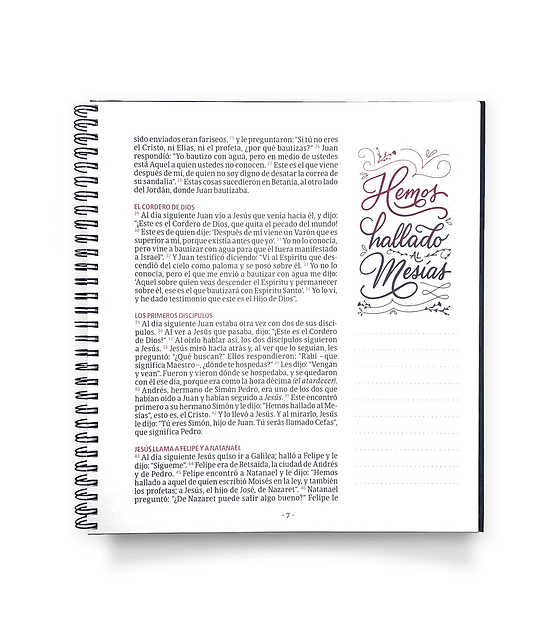 sido enviados eran fariseos, 25 y le preguntaron: "Si tú no eres
el Cristo, ni Elías, ni el profeta, ¿por qué bautizas?" 26 Juan
respondió: "Yo bautizo con agua, pero en medio de ustedes
está Aquel a quien ustedes no conocen. 27 Este es el que viene
después de mí, de quien no soy digno de desatar la correa de
su sandalia". 28 Estas cosas sucedieron en Betania, al otro lado
del Jordán, donde Juan bautizaba.
EL CORDERO DE DIOS
29 Al día siguiente Juan vio a Jesús que venía hacia él, y dijo:
"¡Este es el Cordero de Dios, que quita el pecado del mundo!
30 Este es de quien dije: 'Después de mí viene un Varón que es
superior a mí, porque existía antes que yo'. 31 Yo no lo conocía,
pero vine a bautizar con agua para que él fuera manifestado
a Israel". 32 Y Juan testificó diciendo: "Vi al Espíritu que des-
cendió del cielo como paloma y se posó sobre él. 33 Yo no lo
conocía, pero el que me envió a bautizar con agua me dijo:
'Aquel sobre quien veas descender el Espíritu y permanecer
sobre él, ese es el que bautizará con Espíritu Santo'. 34 Yo lo vi,
y he dado testimonio que este es el Hijo de Dios".
LOS PRIMEROS DISCÍPULOS
35 Al día siguiente Juan estaba otra vez con dos de sus discí-
pulos. 36 Al ver a Jesús que pasaba, dijo: "¡Este es el Cordero
de Dios!" 37 Al oírlo hablar así, los dos discípulos siguieron
a Jesús. 38 Jesús miró hacia atrás y, al ver que lo seguían, les
preguntó: "¿Qué buscan?" Ellos respondieron: "Rabí –que
significa Maestro–, ¿dónde te hospedas?" 39 Les dijo: "Vengan
y vean". Fueron y vieron dónde se hospedaba, y se quedaron
con él ese día, porque era como la hora décima (el atardecer).
40 Andrés, hermano de Simón Pedro, era uno de los dos que
habían oído a Juan y habían seguido a Jesús. 41 Este encontró
primero a su hermano Simón y le dijo: "Hemos hallado al Me-
sías", esto es, el Cristo. 42 Y lo llevó a Jesús. Y al mirarlo, Jesús
le dijo: "Tú eres Simón, hijo de Juan. Tú serás llamado Cefas",
que significa Pedro.
JESÚS LLAMA A FELIPE Y A NATANAEL
43 Al día siguiente Jesús quiso ir a Galilea; halló a Felipe y le
dijo: "Sígueme". 44 Felipe era de Betsaida, la ciudad de Andrés
y de Pedro. 45 Felipe encontró a Natanael y le dijo: "Hemos
hallado a aquel de quien escribió Moisés en la ley, y también
los profetas; a Jesús, el hijo de José, de Nazaret". 46 Natanael
preguntó: "¿De Nazaret puede salir algo bueno?" Felipe le
- 7 -
Hemos
hallado
AL
Mesías